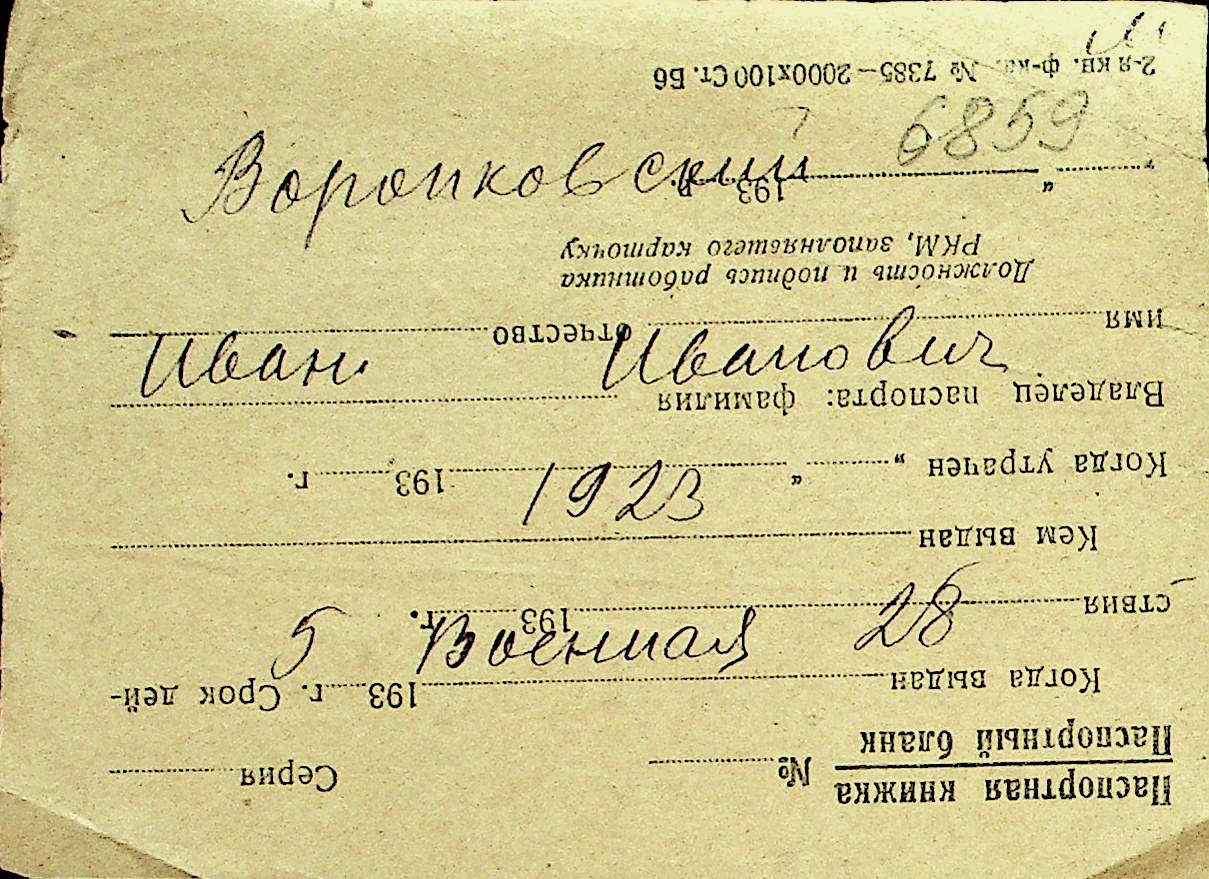 6859
Воропковский
Иван Иванович
1923
5 Военная 28
Паспортная книжка
Паспортный бланк
№ Серия
Когда выдан 193 г. Срок дей-
ствия 193 г.
Кем выдан
Когда утрачен „ “ 193 г.
Владелец паспорта: фамилия
имя отчество
Должность и подпись работника
РКМ, заполнявшего карточку
„ “ 193 г.
2-я кн. ф-ка. № 7385—2000х100 Ст. Б6